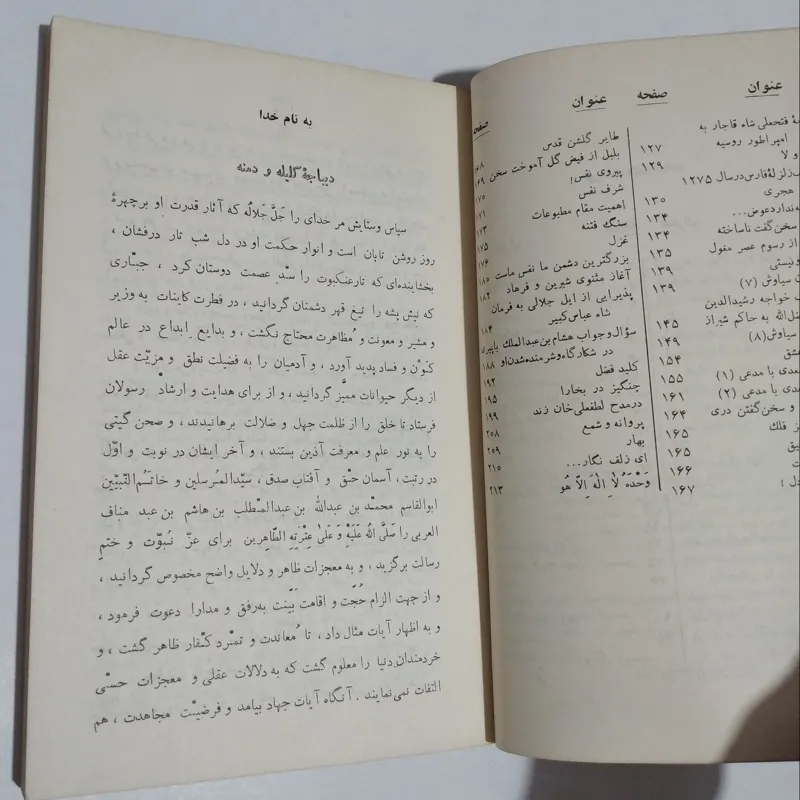 عنوان
صفحه
عنوان
صفحه
فتحعلی شاه قاجار به
امپراطور روسیه ۱۲۷
و لا ۱۲۹
زلزلهٔ فارس در سال ۱۲۷۵
هجری ۱۳۰
ندارد عوض... ۱۳۴
سخن گفت ناساخته ۱۳۴
از رسوم عصر مغول ۱۳۵
ونیستی ۱۳۹
سیاوش (۷) ۱۳۹
خواجه رشیدالدین
الله به حاکم شیراز ۱۴۵
سیاوش (۸) ۱۴۹
عشق ۱۵۴
سعدی با مدعی (۱) ۱۵۵
سعدی با مدعی (۲) ۱۶۱
و سخن گفتن دری ۱۶۴
فلك ۱۶۵
۱۶۵
۱۶۶
دل ! ۱۶۷
طایر گلشن قدس
بلبل از فیض گل آموخت سخن ۱۶۸
پیروی نفس! ۱۶۹
شرف نفس ۱۷۰
اهمیت مقام مطبوعات ۱۷۱
سنگ فتنه ۱۷۳
غزل ۱۷۵
بزرگترین دشمن ما نفس ماست ۱۷۶
آغاز مثنوی شیرین و فرهاد ۱۸۰
پذیرایی از ایل جلالی به فرمان ۱۸۲
شاه عباس کبیر ۱۸۴
سؤال وجواب هشام بن عبدالملك باپیری
در شکارگاه وشرمنده شدن او ۱۸۸
کلید فضل ۱۹۲
چنگیز در بخارا ۱۹۵
درمدح لطفعلی خان زند ۱۹۹
پروانه و شمع ۲۵۸
بهار ۲۵۹
ای زلف نگار... ۲۱۵
وَحْدَهُ لاٰ اِلٰهَ اِلاّٰ هُو ۲۱۳
به نام خدا
دیباچهٔ کلیله و دمنه
سپاس وستایش مر خدای را جَلَّ جَلالُه که آثار قدرت او برچهرهٔ
روز روشن تابان است و انوار حکمت او در دل شب تار درفشان ،
بخشاینده‌ای که تارعنکبوت را سدِّ عصمت دوستان کرد ، جبّاری
که نیش پشه را تیغ قهر دشمنان گردانید ، در فطرت کاینات به وزیر
و مشیر و معونت و مُظاهرت محتاج نگشت ، و بدایع اِبداع در عالم
کوْن و فساد پدید آورد ، و آدمیان را به فضیلت نطق و مزیّت عقل
از دیگر حیوانات ممیَّز گردانید ، و از برای هدایت و ارشاد رسولان
فرستاد تا خلق را از ظلمت جهل و ضلالت برهانیدند ، و صحن گیتی
را به نور علم و معرفت آذین بستند ، و آخر ایشان در نوبت و اوّل
در رتبت ، آسمان حقّ و آفتاب صدق ، سیّدالمُرسلین و خاتَم‌ُالنّبیّین
ابوالقاسم محمّد بن عبدالله بن عبدالمُطّلب بن هاشم بن عبد مناف
العربی را صَلَّی اللهُ عَلَیْهِ وَ عَلیٰ عِتْرَتِهِ الطّاهِرین برای عزّ نُبوّت و ختم
رسالت برگزید ، و به معجزات ظاهر و دلایل واضح مخصوص گردانید ،
و از جهت الزام حُجّت و اقامت بَیّنت به‌رفق و مدارا دعوت فرمود ،
و به اظهار آیات مثال داد ، تا مُعاندت و تمرّد کفّار ظاهر گشت ، و
خردمندان دنیا را معلوم گشت که به دلالات عقلی و معجزات حسّی
التفات نمی‌نمایند . آنگاه آیات جهاد بیامد و فرضیّت مجاهدت ، هم